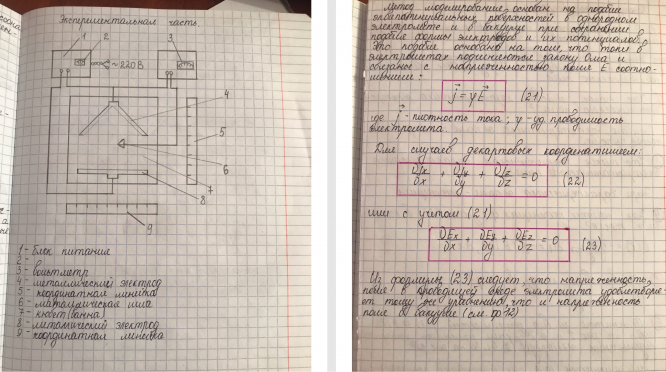 Экспериментальная часть.
1
2
3
~220 В
4
5
6
7
8
9
1 - блок питания
2 -
3 - вольтметр
4 - металлический электрод
5 - координатная линейка
6 - металлическая игла
7 - кювет (ванна)
8 - металический электрод
9 - координатная линейка
Метод моделирование основан на подобие
эквипотенциальных поверхностей в однородном
электролите и в вакууме при сохранение
подобие формы электродов и их потенциалов.
Это подобие основано на том, что токи в
электролитах подчиняются закону Ома и
связаное с напряженностью поля E соотно-
шением:
j⃗ = γE⃗ (21)
где j⃗ - плотность тока; γ - уд. проводимость
электролита.
Для случаев декартовых координат имеем:
∂jx/∂x + ∂jy/∂y + ∂jz/∂z = 0 (22)
или с учетом (21)
∂Ex/∂x + ∂Ey/∂y + ∂Ez/∂z = 0 (23)
Из формулы (23) следует, что напряженность
поле в проводящей среде электролита удовлетворя-
ет тому же уравнению что и напряженность
поле в вакууме (см. ф 12)